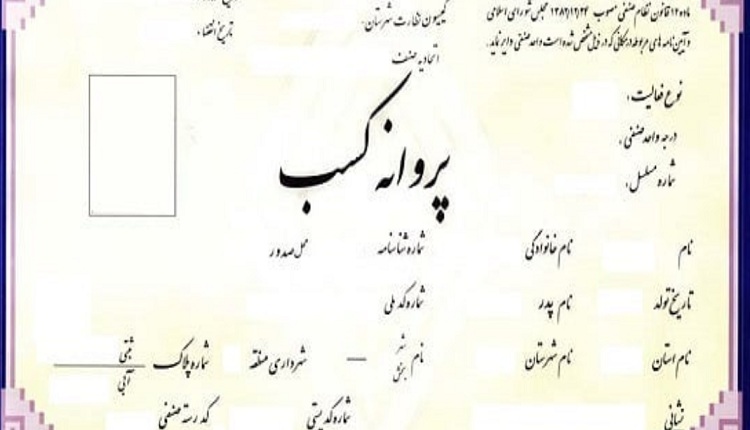 ماده ۱۲ قانون نظام صنفی مصوب ۱۳۸۲/۱۲/۲۴ مجلس شورای اسلامی
و آیین نامه های مربوطه در مکانی که در ذیل مشخص شده است واحد صنفی دایر نماید.
کمیسیون نظارت شهرستان:
اتحادیه صنف
تاریخ انقضاء:
نوع فعالیت:
درجه واحد صنفی:
شماره مسلسل:
پروانه کسب
نام نام خانوادگی شماره شناسنامه محل صدور
تاریخ تولد نام پدر شماره کد ملی
نام استان نام شهرستان نام شهر بخش شهرداری منطقه شماره پلاک ثبتی آبی
نشانی شماره کدپستی کد رسته صنفی